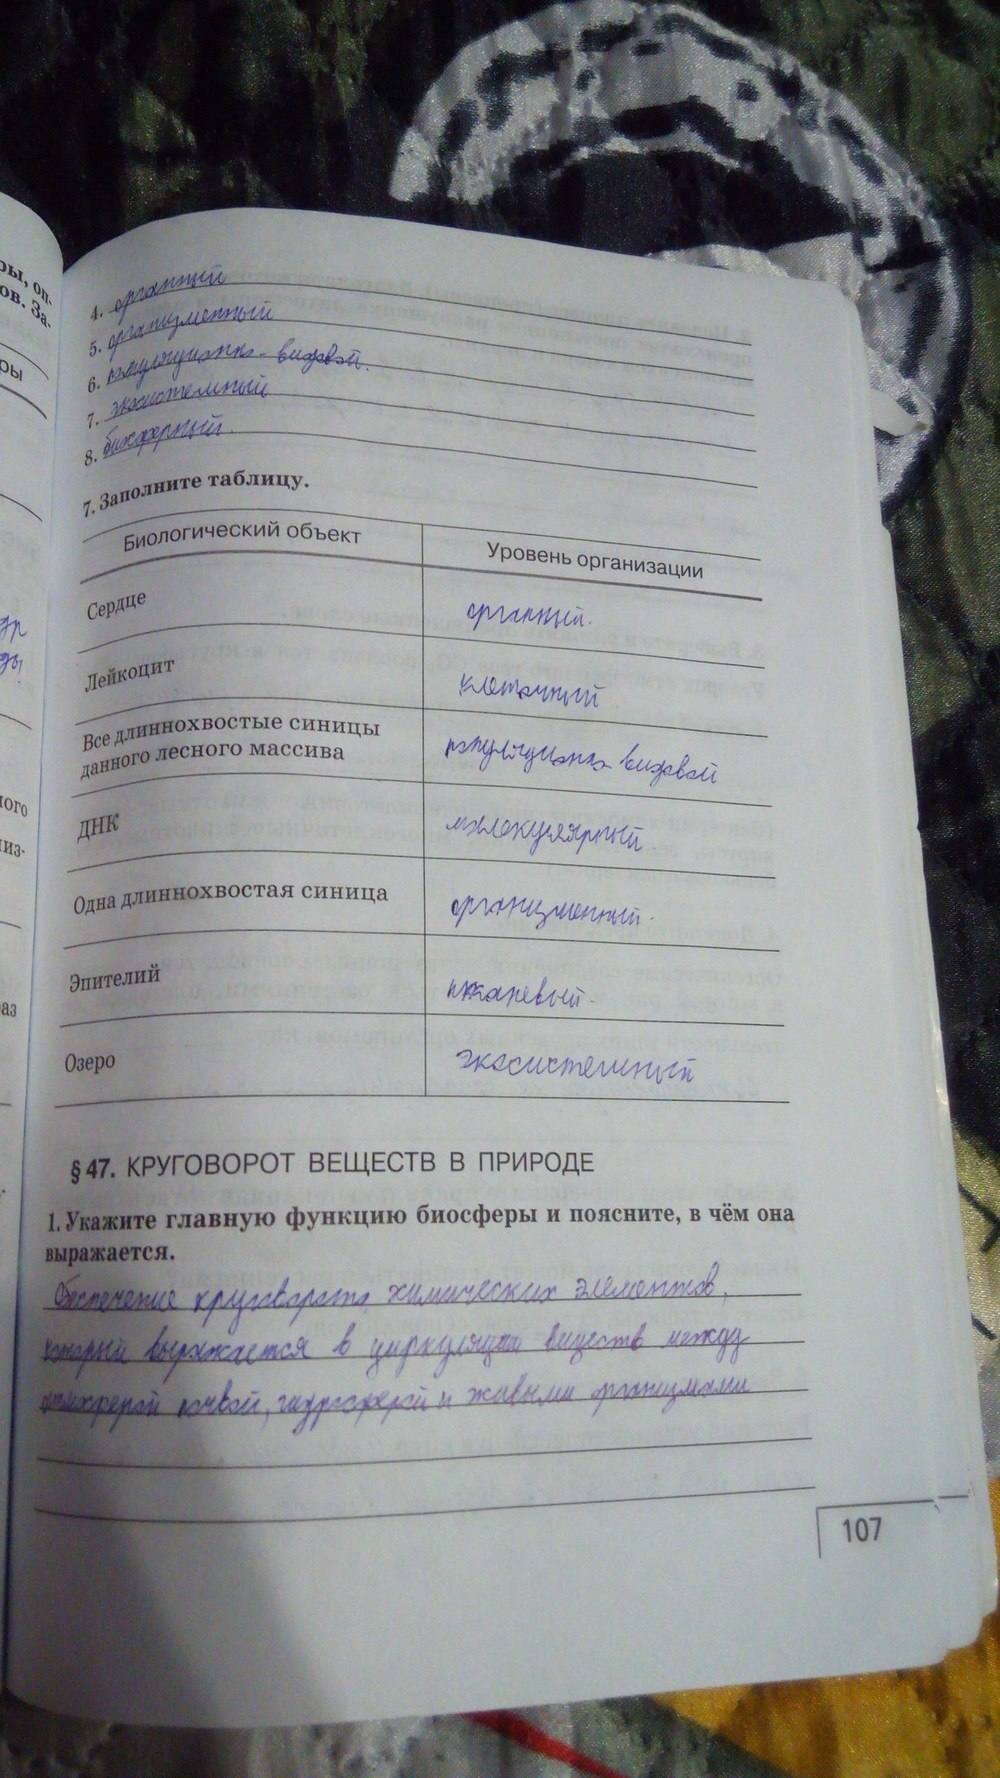 ры, оп-
ов. За-
ры
др
ды
ного
из-
раз
4. органный
5. организменный
6. популяционно-видовой.
7. экосистемный
8. биосферный.
7. Заполните таблицу.
Биологический объект Уровень организации
Сердце органный.
Лейкоцит клеточный
Все длиннохвостые синицы
данного лесного массива популяционно-видовой
ДНК молекулярный
Одна длиннохвостая синица организменный.
Эпителий тканевый.
Озеро экосистемный
§ 47. КРУГОВОРОТ ВЕЩЕСТВ В ПРИРОДЕ
1. Укажите главную функцию биосферы и поясните, в чём она
выражается.
Обеспечение круговорота химических элементов,
который выражается в циркуляции веществ между
атмосферой почвой, гидросферой и живыми организмами
107